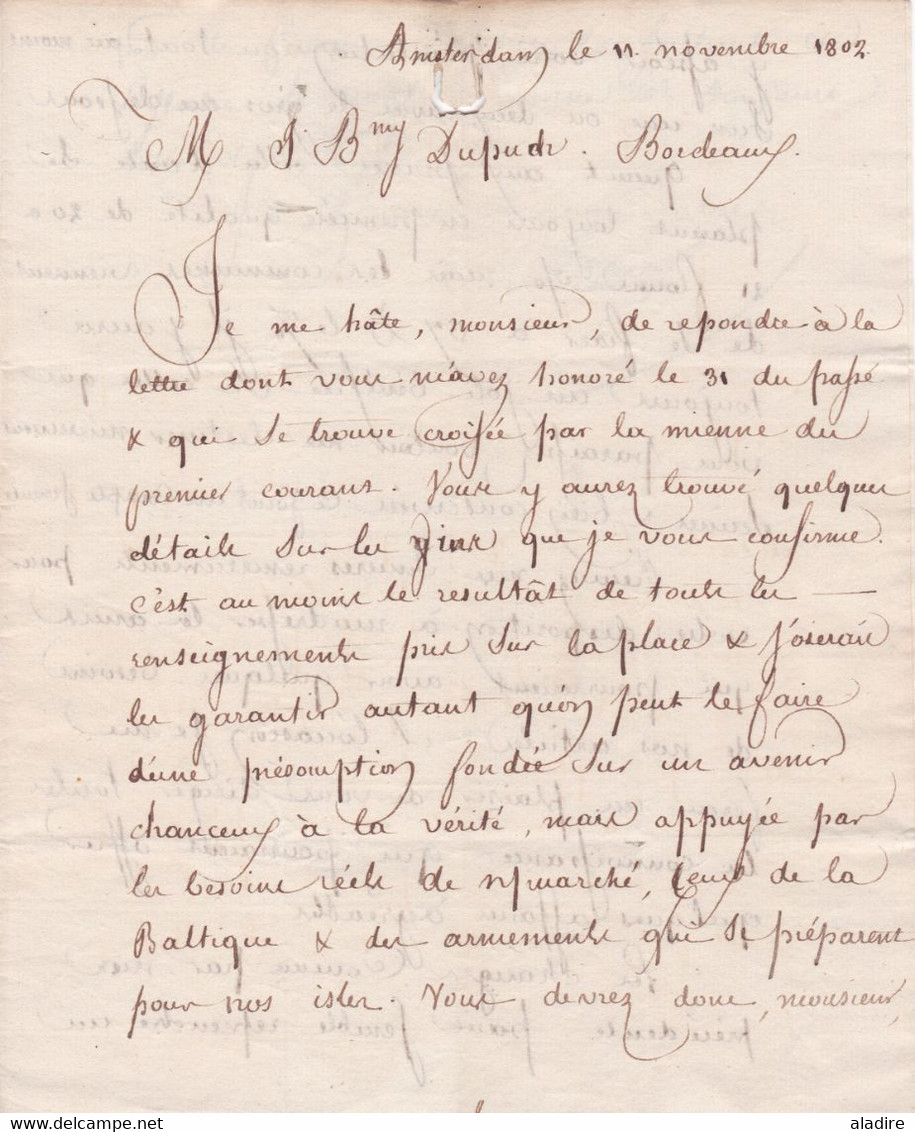 Amsterdam le 11 novembre 1802
M J Bmy Dupuch. Bordeaux.
Je me hâte, monsieur, de repondre à la
lettre dont vous m'avez honoré le 31 du passé
& qui se trouve croisée par la mienne du
premier courant. Vous y aurez trouvé quelques
détails sur les vins que je vous confirme.
c'est au moins le resultât de touts les
renseignements pris sur la place & j'oserais
les garantir autant qu'on peut le faire
d'une présomption fondée sur un avenir
chanceux à la vérité, mais appuyée par
les besoins réels de n/marché, ceux de la
Baltique & des armements qui se préparent
pour nos isles. Vous devrez donc, monsieur,
aladire